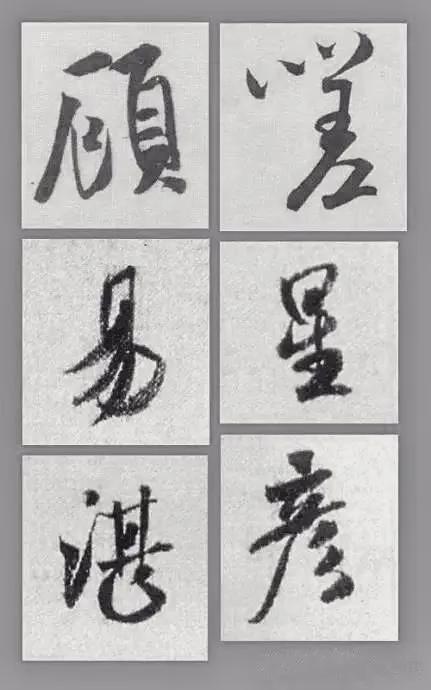 顾 嗟
易 星
湛 彦